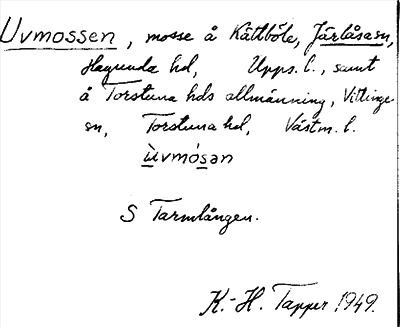 Uvmossen, mosse å Kättböle, Järlåsa sn,
Hagunda hd, Upps. l., samt
å Torstuna hds allmänning, Vittinge
sn, Torstuna hd, Västm. l.
ùvmósən
S Tarmlången.
K.-H. Tapper 1949.